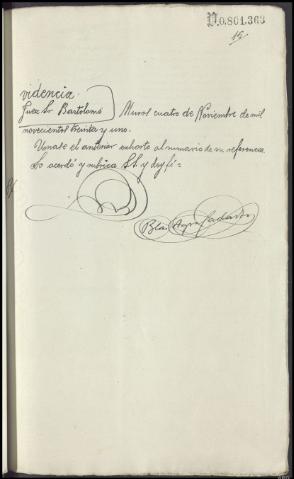 N.0.861.363
15
videncia
Juez Sr Bartolomé } Murol cuatro de Noviembre de mil
novecientos treinta y uno.
Unase el anterior exhorto al sumario de su referencia.
Lo acordó y rubrica S.S. y doy fé =
Blas